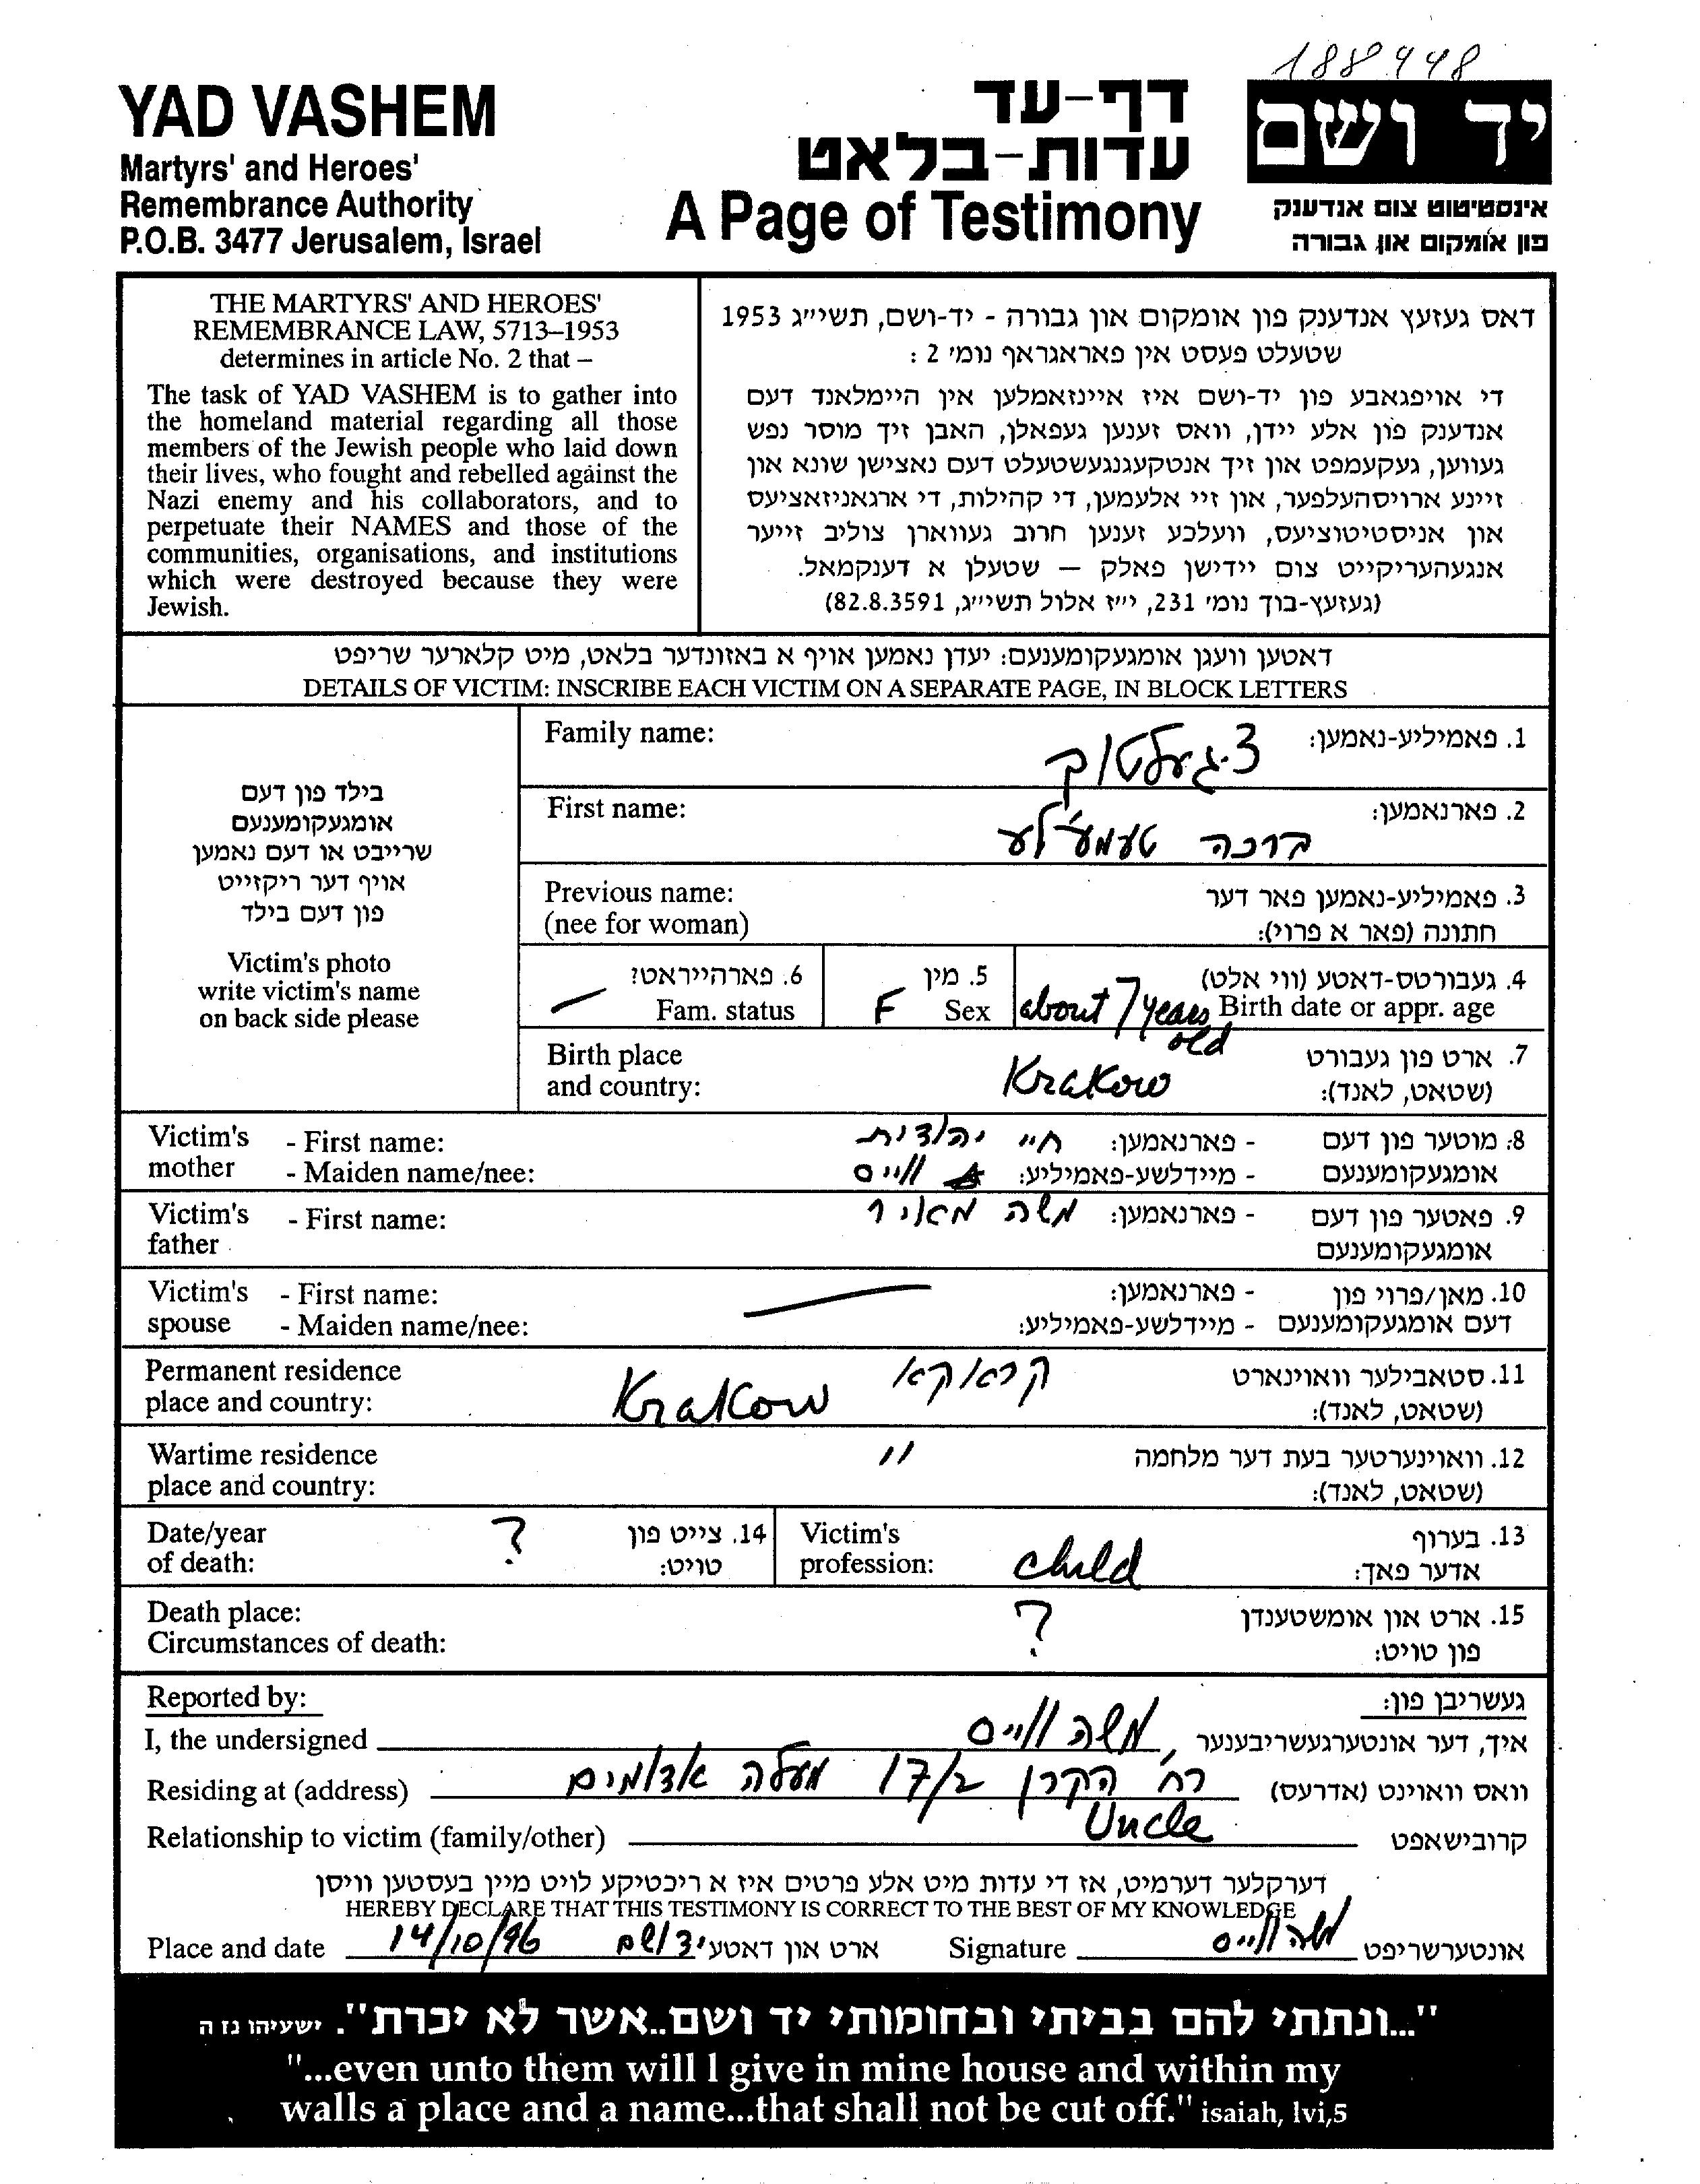 1889448
YAD VASHEM
Martyrs' and Heroes'
Remembrance Authority
P.O.B. 3477 Jerusalem, Israel
דף-עד
עדות-בלאט
A Page of Testimony
יד ושם
אינסטיטוט צום אנדענק
פון אומקום און גבורה
THE MARTYRS' AND HEROES'
REMEMBRANCE LAW, 5713–1953
determines in article No. 2 that –
The task of YAD VASHEM is to gather into
the homeland material regarding all those
members of the Jewish people who laid down
their lives, who fought and rebelled against the
Nazi enemy and his collaborators, and to
perpetuate their NAMES and those of the
communities, organisations, and institutions
which were destroyed because they were
Jewish.
דאס געזעץ אנדענק פון אומקום און גבורה - יד-ושם, תשי״ג 1953
שטעלט פעסט אין פאראגראף נומ׳ 2 :
די אויפגאבע פון יד-ושם איז איינזאמלען אין היימלאנד דעם
אנדענק פון אלע יידן, וואס זענען געפאלן, האבן זיך מוסר נפש
געווען, געקעמפט און זיך אנטקעגנגעשטעלט דעם נאצישן שונא און
זיינע ארויסהעלפער, און זיי אלעמען, די קהילות, די ארגאניזאציעס
און אניסטיטוציעס, וועלכע זענען חרוב געווארן צוליב זייער
אנגעהעריקייט צום יידישן פאלק — שטעלן א דענקמאל.
(געזעץ-בוך נומ׳ 231, י״ז אלול תשי״ג, 82.8.3591)
דאטען וועגן אומגעקומענעם: יעדן נאמען אויף א באזונדער בלאט, מיט קלארער שריפט
DETAILS OF VICTIM: INSCRIBE EACH VICTIM ON A SEPARATE PAGE, IN BLOCK LETTERS
בילד פון דעם
אומגעקומענעם
שרייבט או דעם נאמען
אויף דער ריקזייט
פון דעם בילד
Victim's photo
write victim's name
on back side please
Family name: 1. פאמיליע-נאמען:
First name: ברכה טעמע׳לע 2. פארנאמען:
Previous name: 3. פאמיליע-נאמען פאר דער
(nee for woman) חתונה (פאר א פרוי):
6. פארהייראט? 5. מין 4. געבורטס-דאטע (ווי אלט)
— Fam. status F Sex about 7 years old Birth date or appr. age
Birth place 7. ארט פון געבורט
and country: Krakow (שטאט, לאנד):
Victim's - First name: חיי יהודית - פארנאמען: 8. מוטער פון דעם
mother - Maiden name/nee: ווייס - מיידלשע-פאמיליע: אומגעקומענעם
Victim's - First name: משה מאיר - פארנאמען: 9. פאטער פון דעם
father אומגעקומענעם
Victim's - First name: — - פארנאמען: 10. מאן/פרוי פון
spouse - Maiden name/nee: - מיידלשע-פאמיליע: דעם אומגעקומענעם
Permanent residence קראקא 11. סטאבילער וואוינארט
place and country: Krakow (שטאט, לאנד):
Wartime residence " 12. וואוינערטער בעת דער מלחמה
place and country: (שטאט, לאנד):
Date/year ? 14. צייט פון Victim's 13. בערוף
of death: טויט: profession: child אדער פאך:
Death place: ? 15. ארט און אומשטענדן
Circumstances of death: פון טויט:
Reported by: געשריבן פון:
I, the undersigned משה ווייס איך, דער אונטערגעשריבענער,
Residing at (address) רח׳ הקרן 17/2 מעלה אדומים וואס וואוינט (אדרעס)
Relationship to victim (family/other) Uncle קרובישאפט
דערקלער דערמיט, אז די עדות מיט אלע פרטים איז א ריכטיקע לויט מיין בעסטען וויסן
HEREBY DECLARE THAT THIS TESTIMONY IS CORRECT TO THE BEST OF MY KNOWLEDGE
Place and date 14/10/96 יד ושם ארט און דאטע Signature משה ווייס אונטערשריפט
"...ונתתי להם בביתי ובחומותי יד ושם..אשר לא יכרת". ישעיהו נז ה
"...even unto them will I give in mine house and within my
walls a place and a name...that shall not be cut off." isaiah, lvi,5